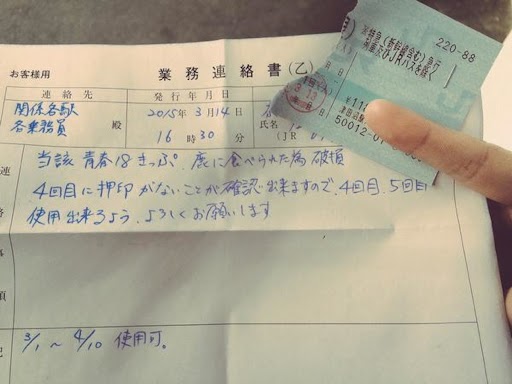 お客様用
業務連絡書(乙)
連絡先
発行年月日
関係各駅
各乗務員
殿
2015年3月14日
16時30分
氏名
(JR
連
事
項
当該 青春18きっぷ 鹿に食べられた為 破損
4回目に押印がないことが確認出来ますので、4回目、5回目
使用出来るよう、よろしくお願いします
3/1 ~ 4/10 使用可。
220-88
特急(新幹線含む)急行
50012-0